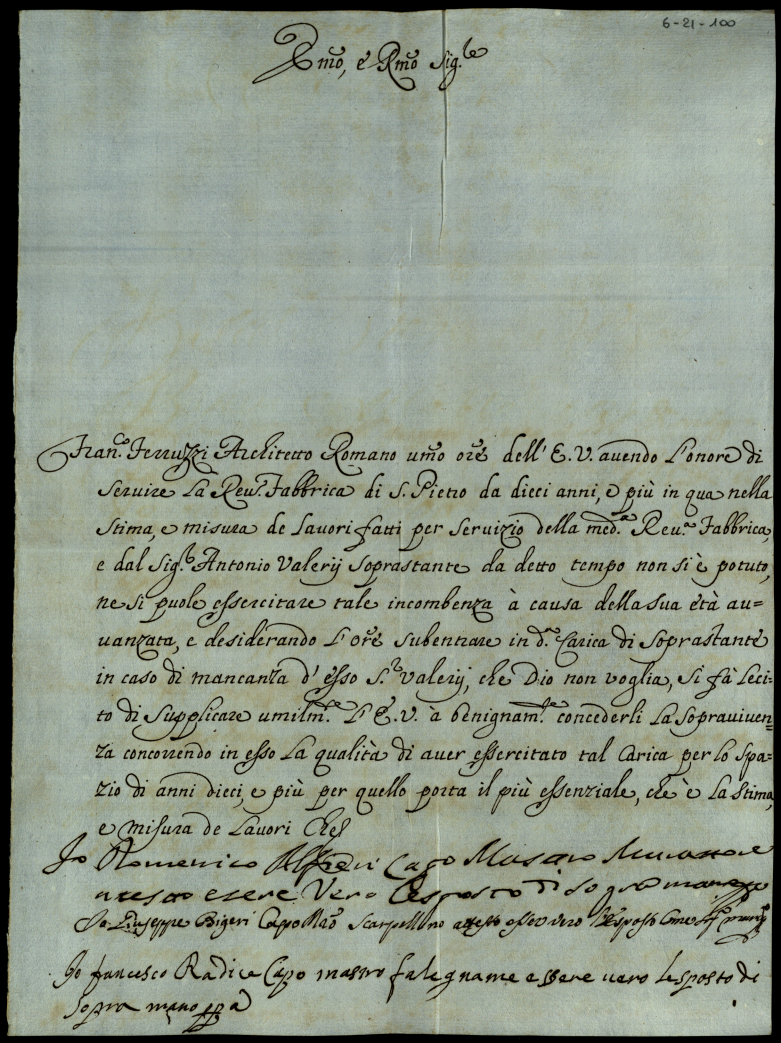 6-21-100
Emõ, è Rmõ Sig.re
Fran.co Ferruzzi Architetto Romano umõ orẽ dell' E. V. avendo l'onore di
servire la Rev.a Fabbrica di S. Pietro da dieci anni, e più in qua nella
stima, e misura de lavori fatti per servizio della med.a Rev.a Fabbrica,
e dal Sig.re Antonio Valerij soprastante da detto tempo non si è potuto,
ne si puole essercitare tale incombenza à causa della sua età au=
vanzata, e desiderando l'orẽ subentrare in d.a Carica di soprastante
in caso di mancanza d'esso S.r Valerij, che Dio non voglia, si fà leci=
to di supplicare umilm.te l'E. V. à benignam.te concederli la sopraviven=
za concorrendo in esso la qualità di aver essercitato tal Carica per lo spa=
zio di anni dieci, e più per quello porta il più essenziale, che è la stima,
e misura de lavori Che
Io Domenico Alfieri Capo Mastro Muratore
attesto esere vero l'esposto di sopra mano
Io Giuseppe Bigeri Capo Mrõ Scarpellino attesto esser vero l'esposto come
Io francesco Radice Capo mastro falegname essere vero lesposto di
sopra mano ppa